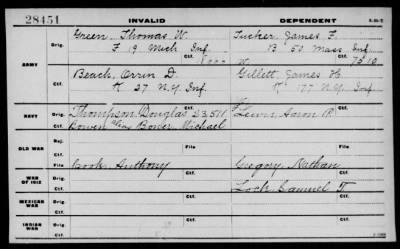 28451 INVALID DEPENDENT
ARMY
Orig. Green, Thomas W. Tucker, James F.
F 19 Mich Inf. B 50 Mass Inf.
Ctf. 7510
Orig. Beach, Orrin D. Gillett, James H.
K 27 N.Y. Inf. K 177 N.Y. Inf.
Ctf.
NAVY
Orig. Thompson, Douglas 23511 Lewis, Aaron R.
Ctf. Bowen alias Bower, Michael
OLD WAR
Rej.
Ctf. File File
WAR OF 1812
Orig. Cook, Anthony Gregory, Nathan
Ctf. Lock, Samuel T.
MEXICAN WAR
Orig.
Ctf.
INDIAN WAR
Orig.
Ctf.